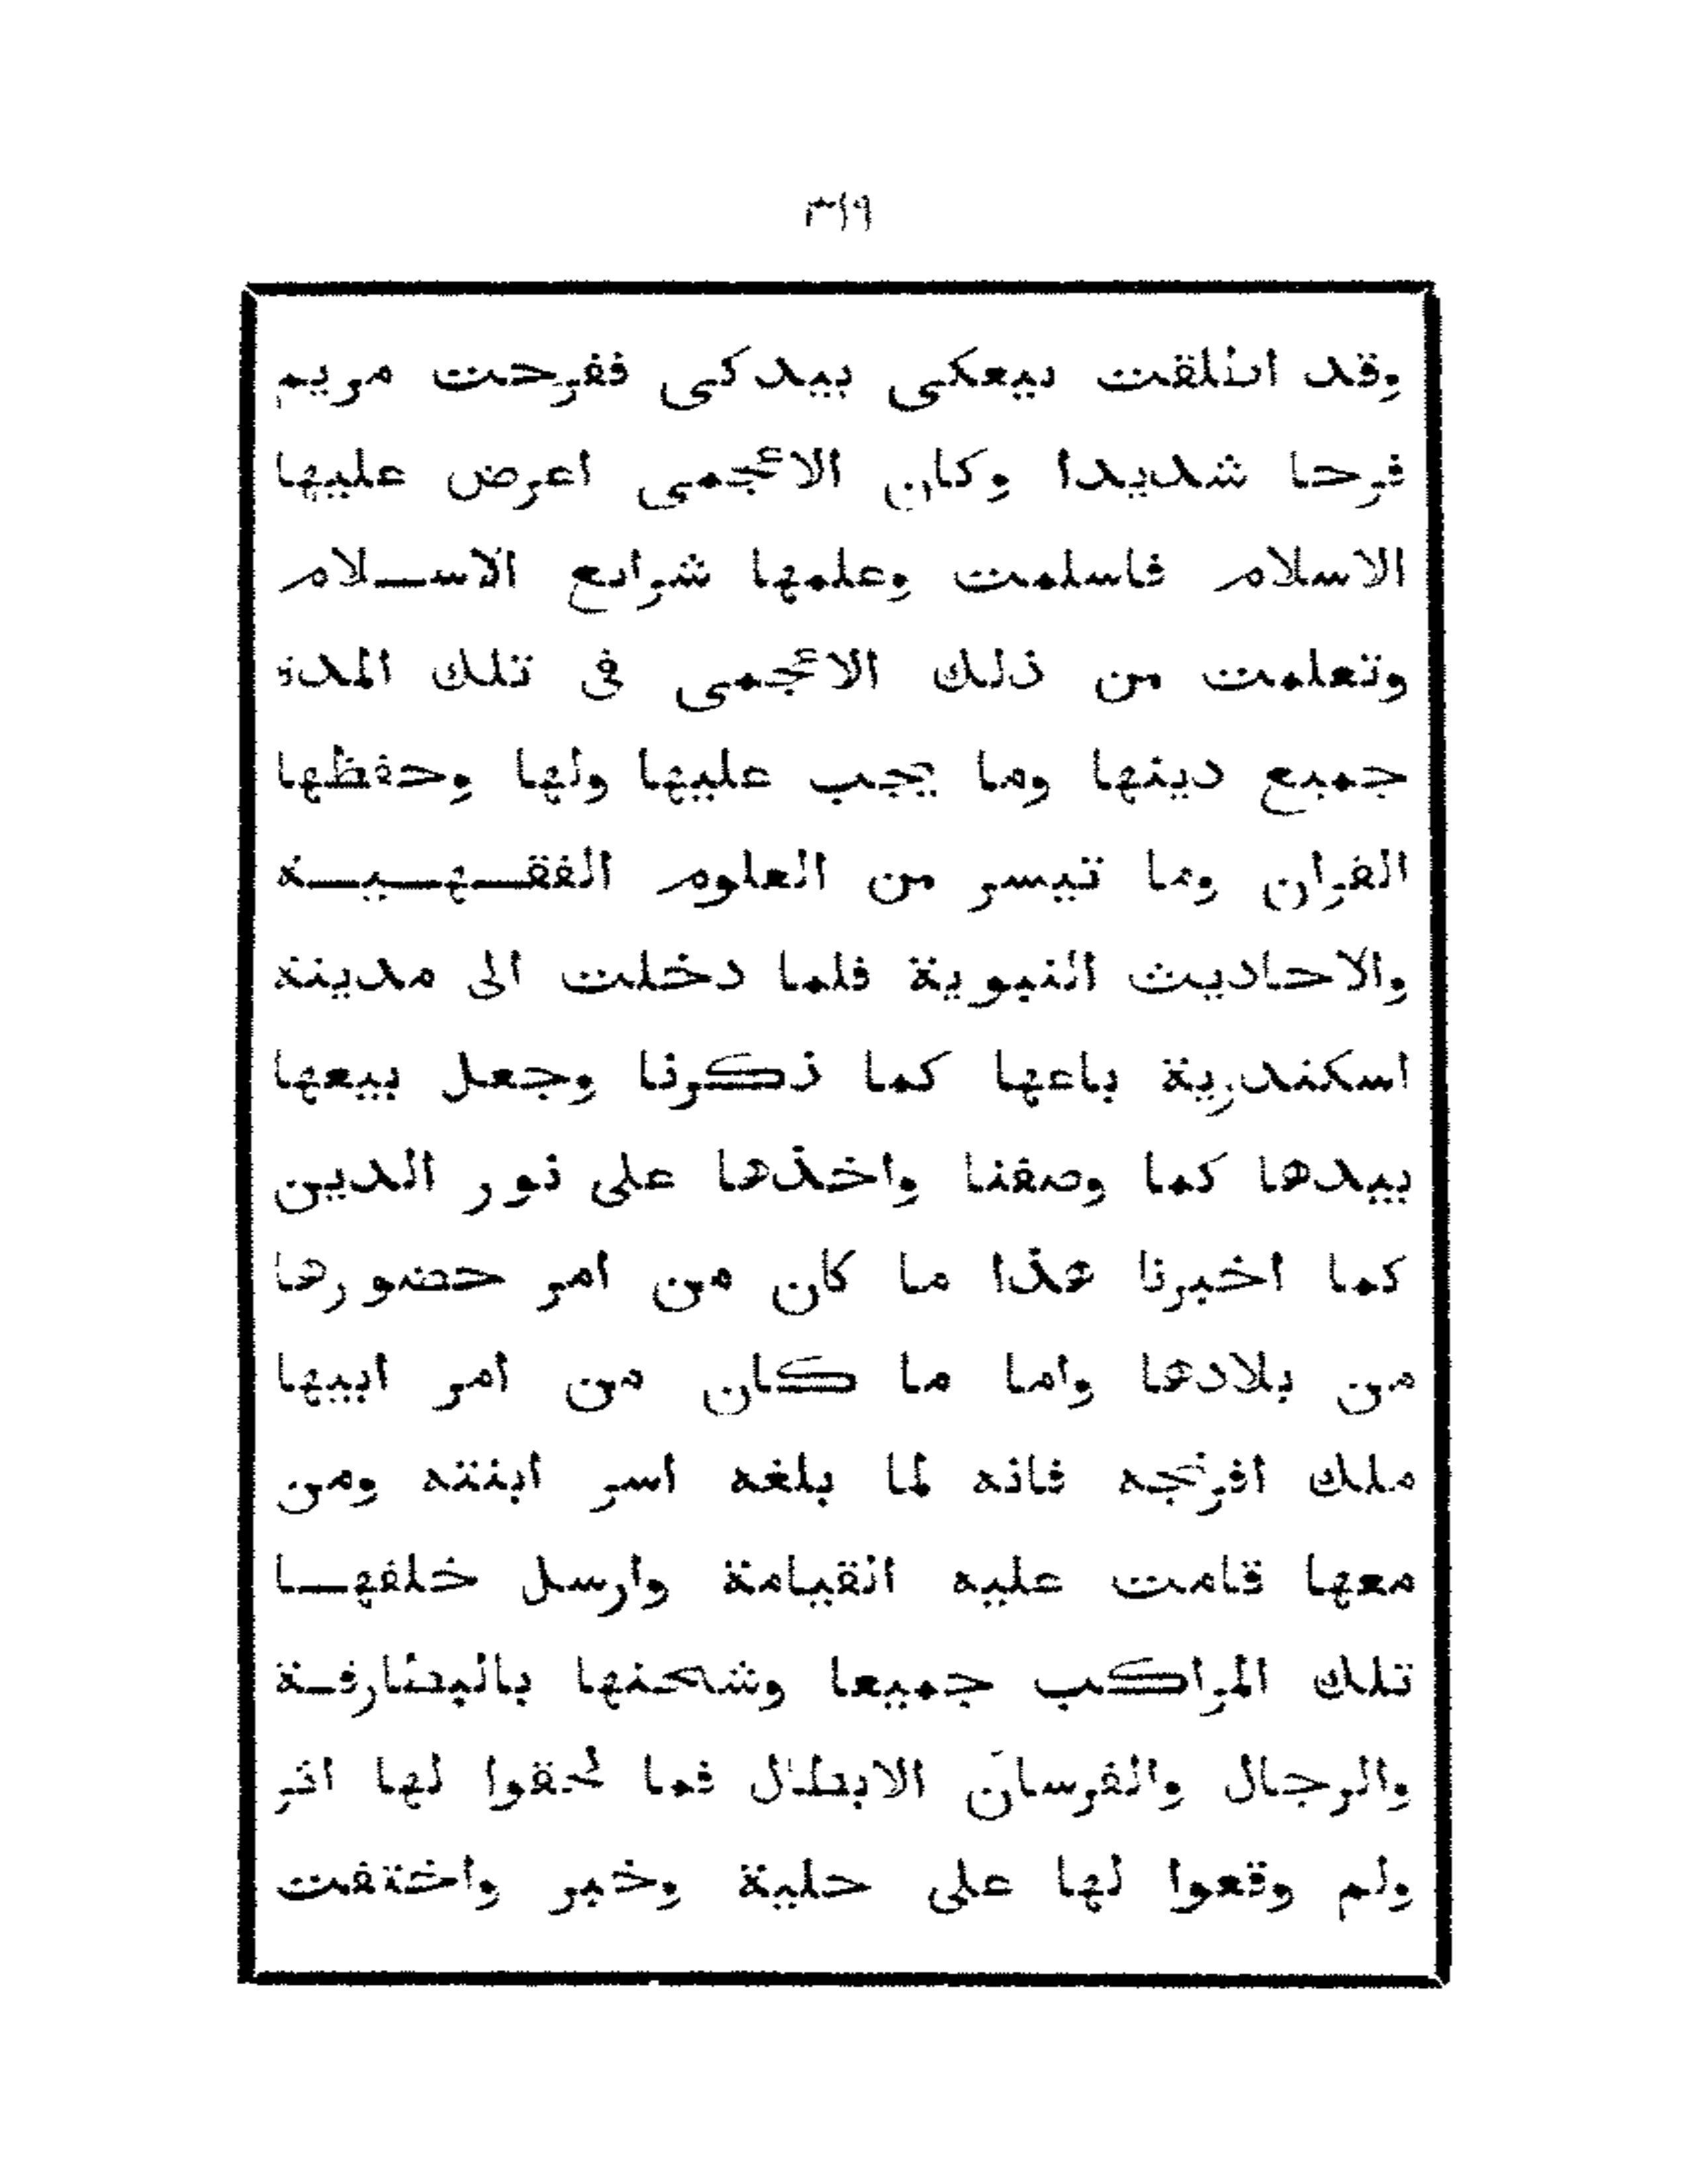 ٣١٩
وقد اطلقت بيعكى بيدكى ففرحت مريم
فرحا شديدا وكان الاعجمى اعرض عليها
الاسلام فاسلمت وعلمها شرايع الاسلام
وتعلمت من ذلك الاعجمى فى تلك المدة
جميع دينها وما يجب عليها ولها وحفظها
القران وما تيسر من العلوم الفقهية
والاحاديث النبوية فلما دخلت الى مدينة
اسكندرية باعها كما ذكرنا وجعل بيعها
بيدها كما وصفنا واخذها على نور الدين
كما اخبرنا هذا ما كان من امر حضورها
من بلادها واما ما كان من امر ابيها
ملك افرنجه فانه لما بلغه اسر ابنته ومن
معها قامت عليه القيامة وارسل خلفها
تلك المراكب جميعا وشحنها بالبطارقة
والرجال والفرسان الابطال فما لحقوا لها اثر
ولم وقعوا لها على حلية وخبر واختفت